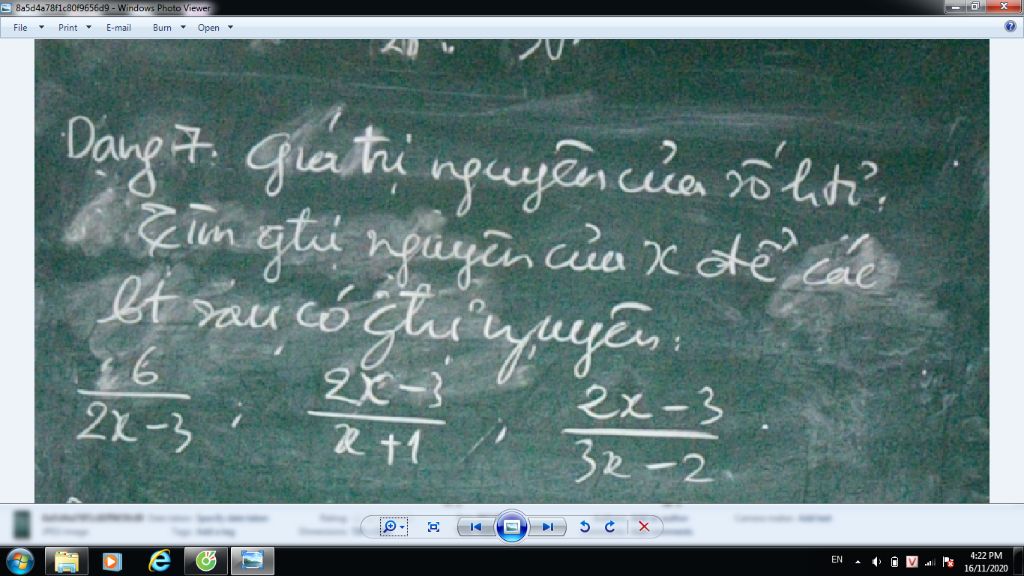 8a5d4a78f1c80f9656d9 - Windows Photo Viewer
File Print E-mail Burn Open
Dạng 7. Giá trị nguyên của số hữu tỉ.
Tìm gtrị nguyên của x để các
bt sau có gtrị nguyên:
6/(2x-3) ; (2x-3)/(x+1) ; (2x-3)/(3x-2) .
EN
4:22 PM
16/11/2020